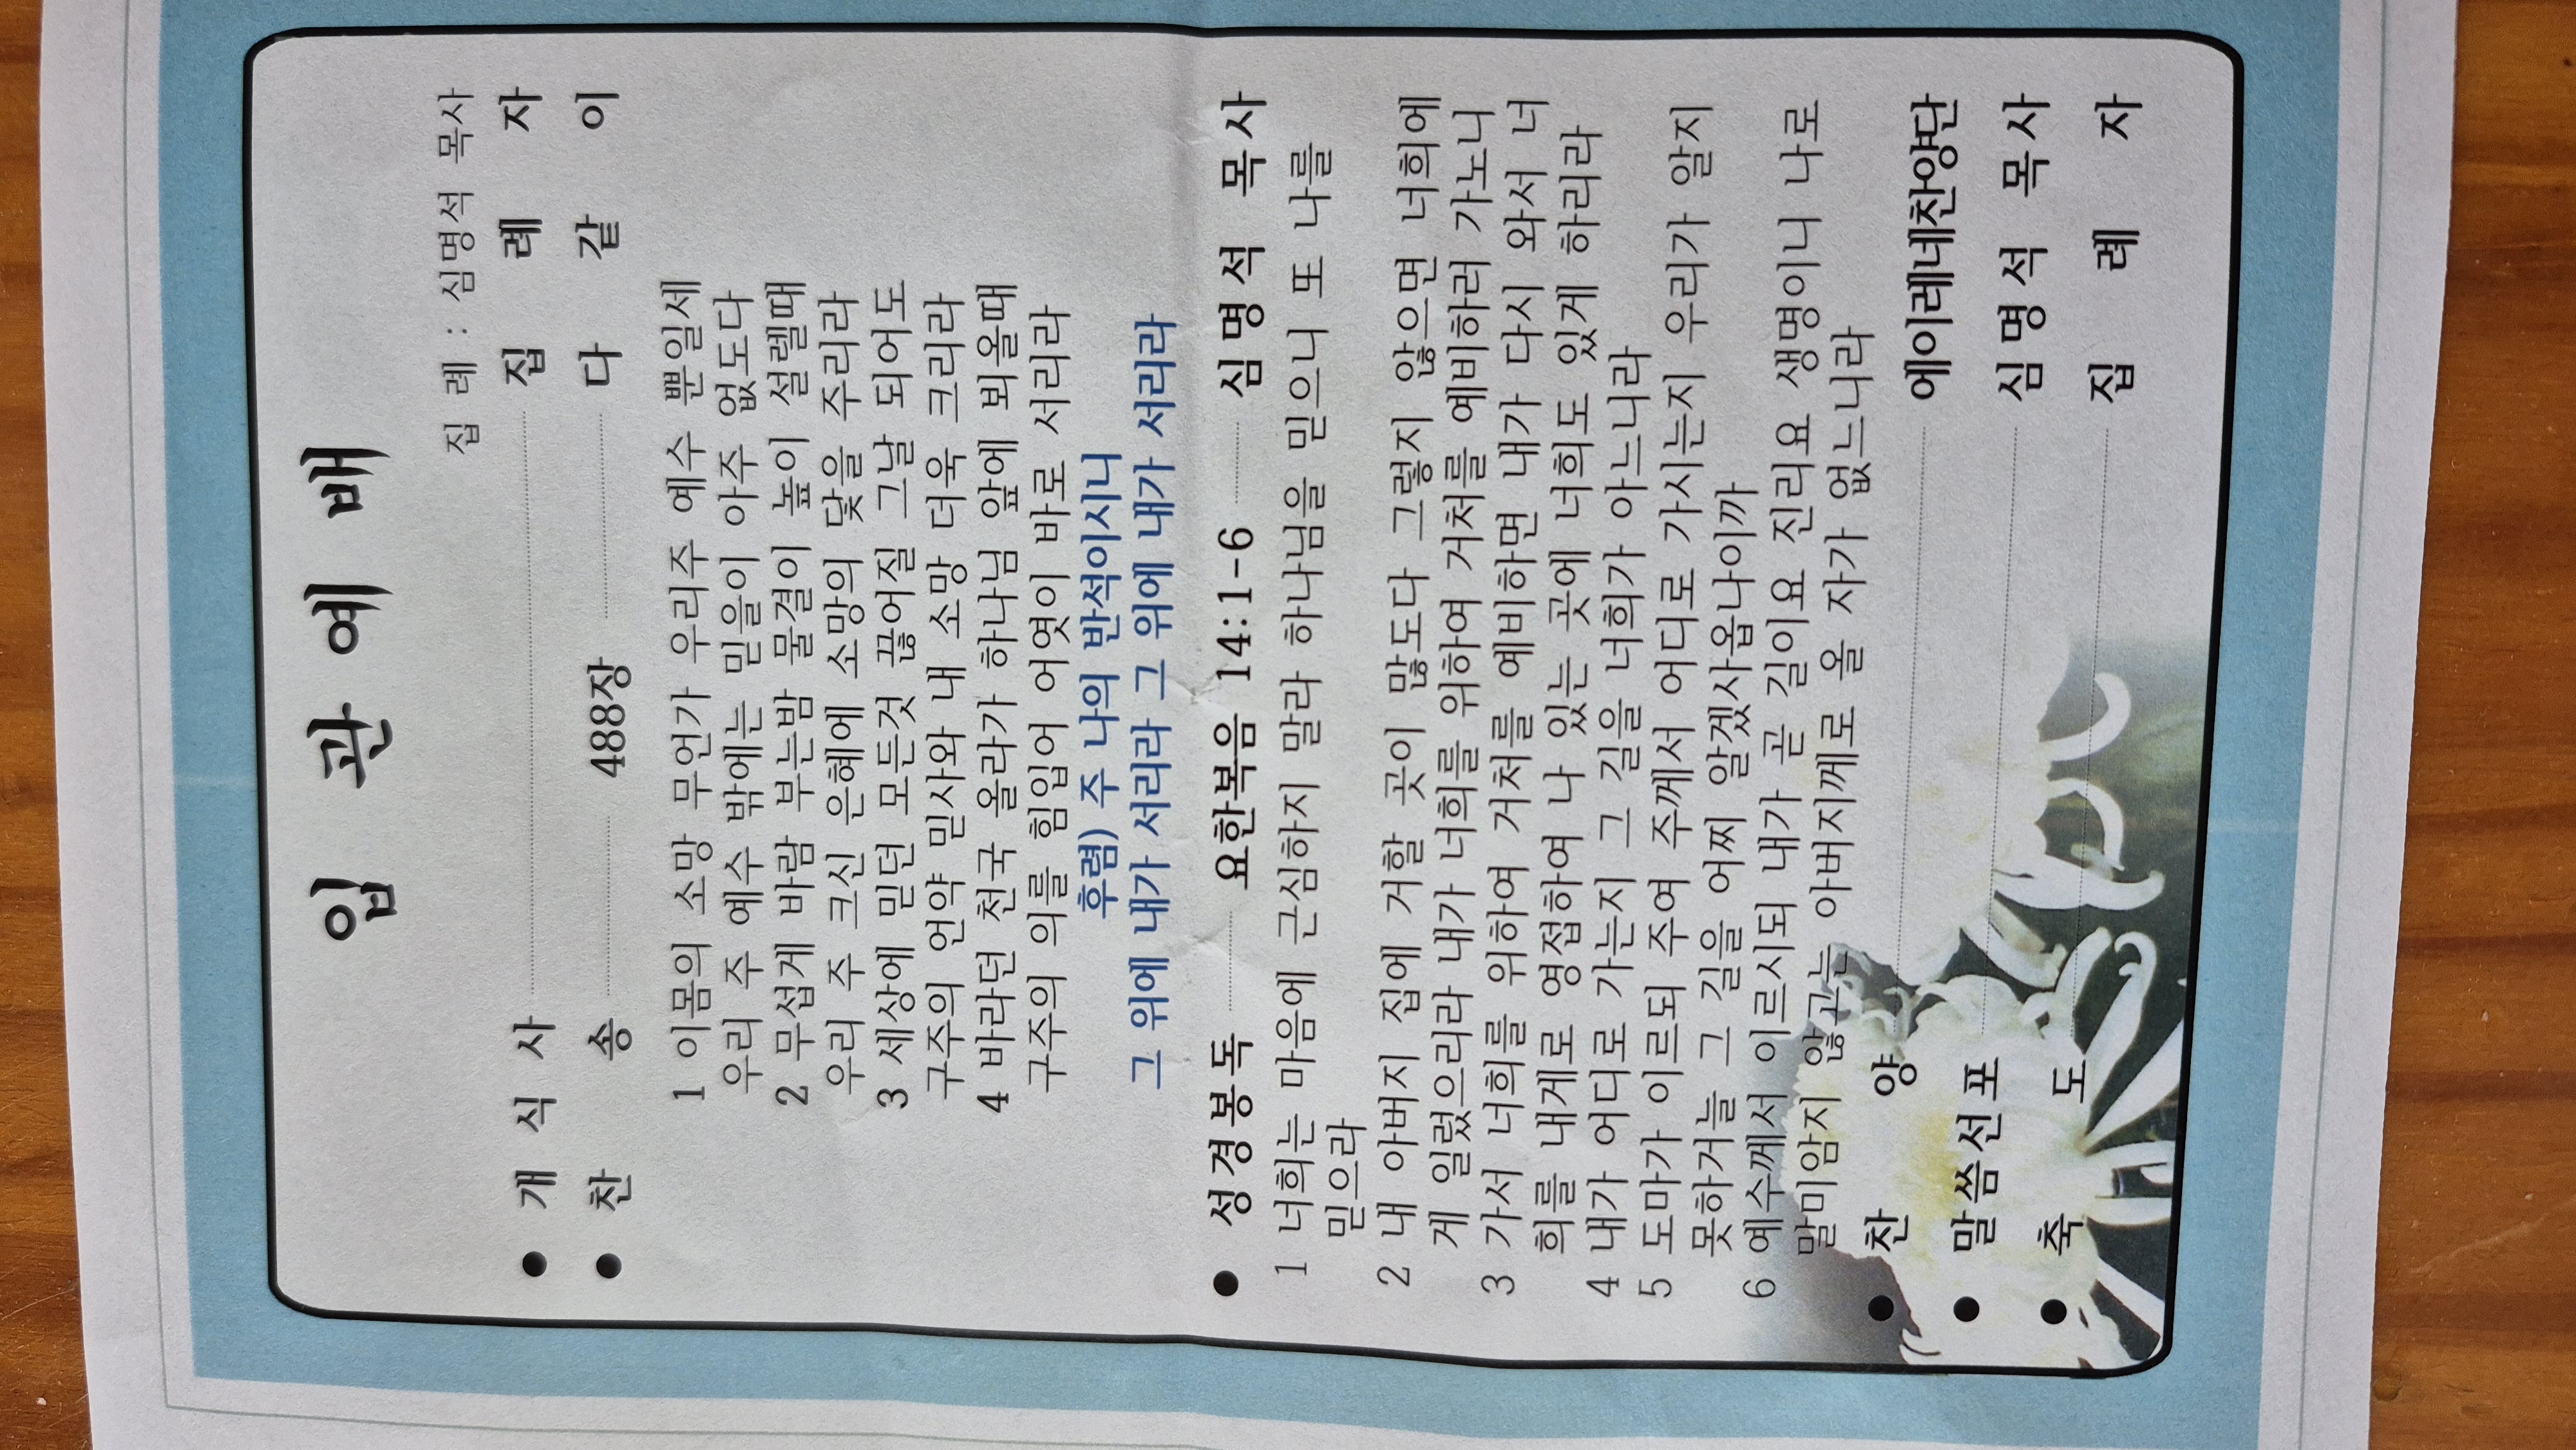 입 관 예 배
집 례 : 심명석 목사
● 개 식 사 집 례 자
● 찬 송 488장 다 같 이
1 이몸의 소망 무언가 우리주 예수 뿐일세
우리 주 예수 밖에는 믿을이 아주 없도다
2 무섭게 바람 부는밤 물결이 높이 설렐때
우리 주 크신 은혜에 소망의 닻을 주리라
3 세상에 믿던 모든것 끊어질 그날 되어도
구주의 언약 믿사와 내 소망 더욱 크리라
4 바라던 천국 올라가 하나님 앞에 뵈올때
구주의 의를 힘입어 어엿이 바로 서리라
후렴) 주 나의 반석이시니
그 위에 내가 서리라 그 위에 내가 서리라
● 성경봉독 요한복음 14:1-6 심명석 목사
1 너희는 마음에 근심하지 말라 하나님을 믿으니 또 나를
믿으라
2 내 아버지 집에 거할 곳이 많도다 그렇지 않으면 너희에
게 일렀으리라 내가 너희를 위하여 거처를 예비하러 가노니
3 가서 너희를 위하여 거처를 예비하면 내가 다시 와서 너
희를 내게로 영접하여 나 있는 곳에 너희도 있게 하리라
4 내가 어디로 가는지 그 길을 너희가 아느니라
5 도마가 이르되 주여 주께서 어디로 가시는지 우리가 알지
못하거늘 그 길을 어찌 알겠사옵나이까
6 예수께서 이르시되 내가 곧 길이요 진리요 생명이니 나로
말미암지 않고는 아버지께로 올 자가 없느니라
● 찬 양 에이레네찬양단
● 말씀선포 심명석 목사
● 축 도 집 례 자